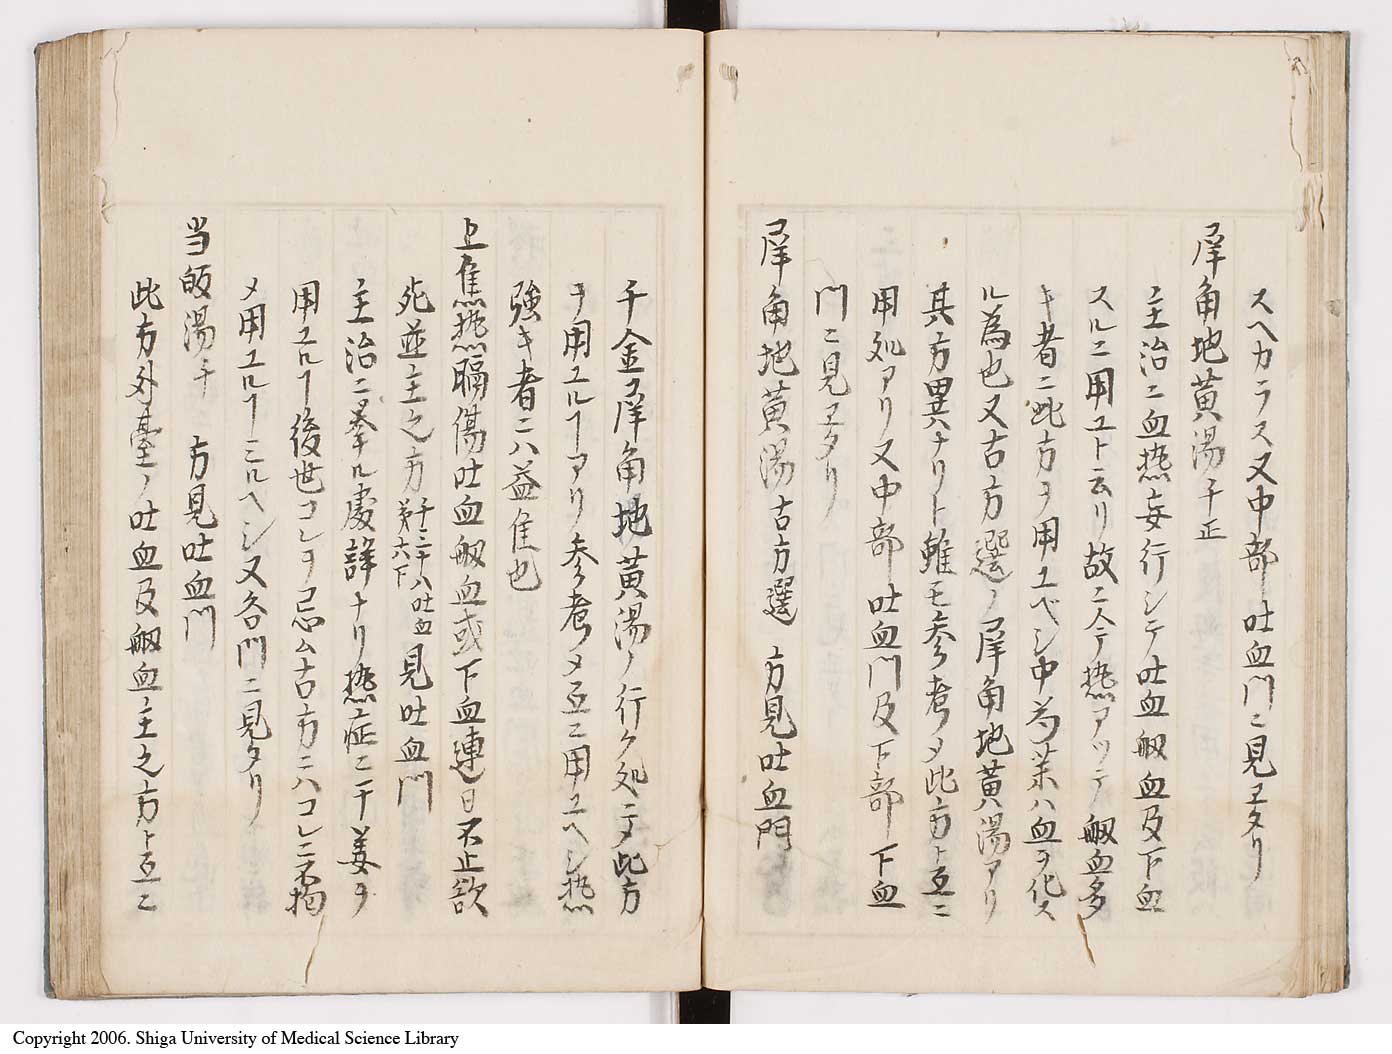 スヘカラス又中部吐血門ニ見ヱタリ
犀角地黄湯千正
主治ニ血熱妄行シテ吐血衂血及下血
スルニ用ユト云リ故ニ今テ熱アツテ衂血多
キ者ニ此方ヲ用ユベシ中芍薬ハ血ヲ化ス
ル為也又古方選ノ犀角地黄湯アリ
其方異ナリト雖モ参考メ此方ト互ニ
用処アリ又中部吐血門及下部下血
門ニ見ヱタリ
犀角地黄湯古方選 方見吐血門
千金犀角地黄湯ノ行ク処ニテ此方
ヲ用ユルヿアリ参考メ互ニ用ユヘシ熱
強キ者ニハ益佳也
上焦熱膈傷吐血衂血或下血連日不止欲
死並主之方千三十八吐血第六下見吐血門
主治ニ挙ル處詳ナリ熱症ニ干姜ヲ
用ユルヿ後世コレヲ忌ム古方ニハコレニ不拘
メ用ユルヿミルヘシ又各門ニ見タリ
当皈湯千 方見吐血門
此方外臺ノ吐血及衂血主之方ト互ニ
Copyright 2006. Shiga University of Medical Science Library